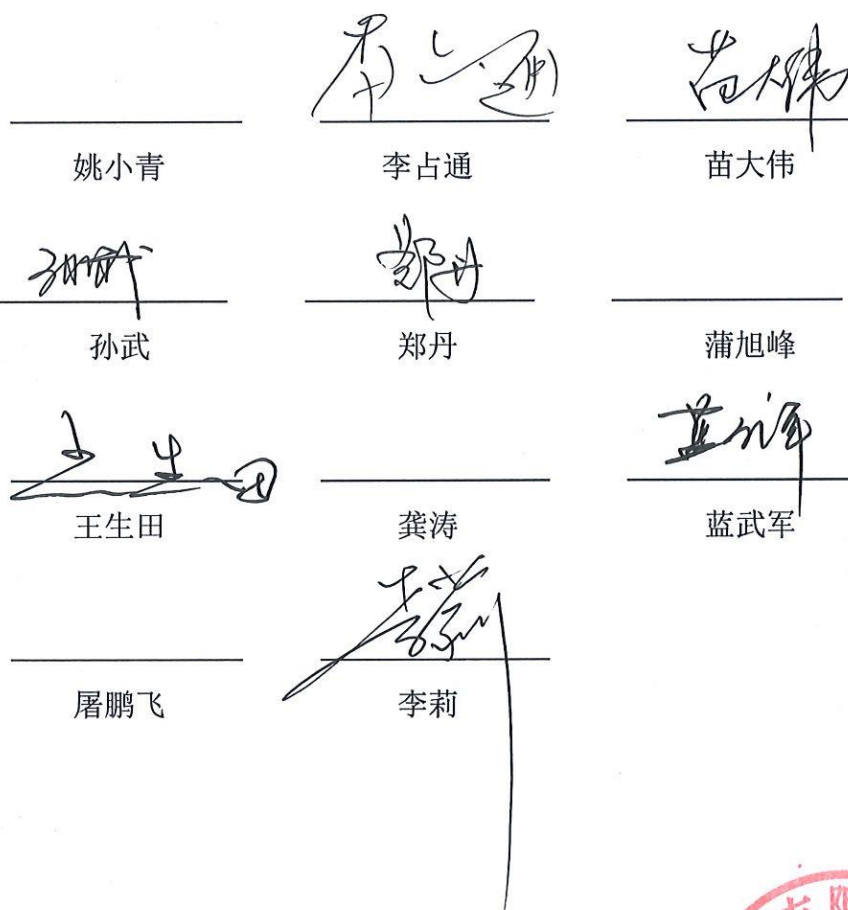 李占通 苗大伟
姚小青 李占通 苗大伟
孙武 郑丹
孙武 郑丹 蒲旭峰
王生田 蓝武军
王生田 龚涛 蓝武军
李莉
屠鹏飞 李莉